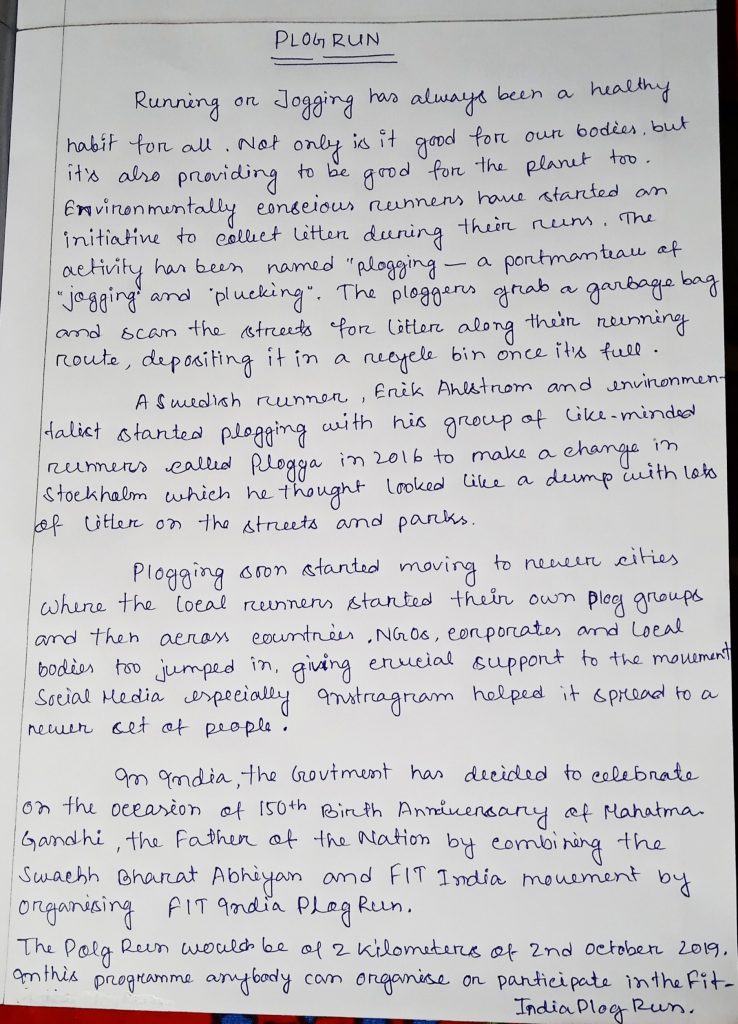 PLOG RUN
Running or Jogging has always been a healthy
habit for all. Not only is it good for our bodies, but
it's also providing to be good for the planet too.
Environmentally conscious runners have started an
initiative to collect litter during their runs. The
activity has been named "plogging — a portmanteau of
"jogging" and "plucking". The ploggers grab a garbage bag
and scan the streets for litter along their running
route, depositing it in a recycle bin once it's full.
A Swedish runner, Erik Ahlstrom and environmen-
talist started plogging with his group of like-minded
runners called Plogga in 2016 to make a change in
Stockholm which he thought looked like a dump with lots
of litter on the streets and parks.
Plogging soon started moving to newer cities
where the local runners started their own plog groups
and then across countries. NGOs, corporates and local
bodies too jumped in, giving crucial support to the movement
Social Media especially Instragram helped it spread to a
newer set of people.
In India, the Govtment has decided to celebrate
on the occasion of 150th Birth Anniversary of Mahatma
Gandhi, the Father of the Nation by combining the
Swachh Bharat Abhiyan and FIT India movement by
organising FIT India PLog Run.
The Polg Run would be of 2 Kilometers of 2nd October 2019.
In this programme anybody can organise or participate in the Fit-
India Plog Run.